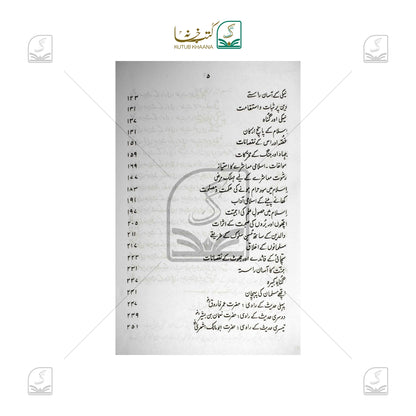 کتب خانہ
KUTUB KHAANA
۵
نیکی کے آسان راستے ۱۲۳
دین پر ثبات و استقامت ۱۳۱
نیکی اور گناہ ۱۳۷
اسلام کے پانچ ارکان ۱۴۱
غصّہ اور اس کے نقصانات ۱۵۱
جہاد اور جنگ کے محرکات ۱۵۹
مواخات ۔ اسلامی معاشرے کا امتیاز ۱۶۹
رشوت معاشرے کے لیے مہلک مرض ۱۷۷
اسلام میں سود حرام ہونے کی حکمت و مصلحت ۱۸۳
کھانے پینے کے اسلامی آداب ۱۹۱
اسلام میں حصولِ علم کی اہمیت ۱۹۷
اچھوں اور بُروں کی صحبت کے اثرات ۲۰۵
والدین کے ساتھ حسنِ سلوک کے طریقے ۲۱۱
مسلمانوں کے اخلاق ۲۱۷
سچائی کے فائدے اور جھوٹ کے نقصانات ۲۲۳
جنّت کا آسان راستہ ۲۳۳
گناہِ کبیرہ ۲۳۷
اچھے مسلمان کی پہچان ۲۳۱
پہلی حدیث کے راوی : حضرت عمر فاروقؓ ۲۳۷
دوسری حدیث کے راوی : حضرت نعمان بن بشیرؓ ۲۳۹
تیسری حدیث کے راوی : حضرت ابو مالک اشعریؓ ۲۵۱